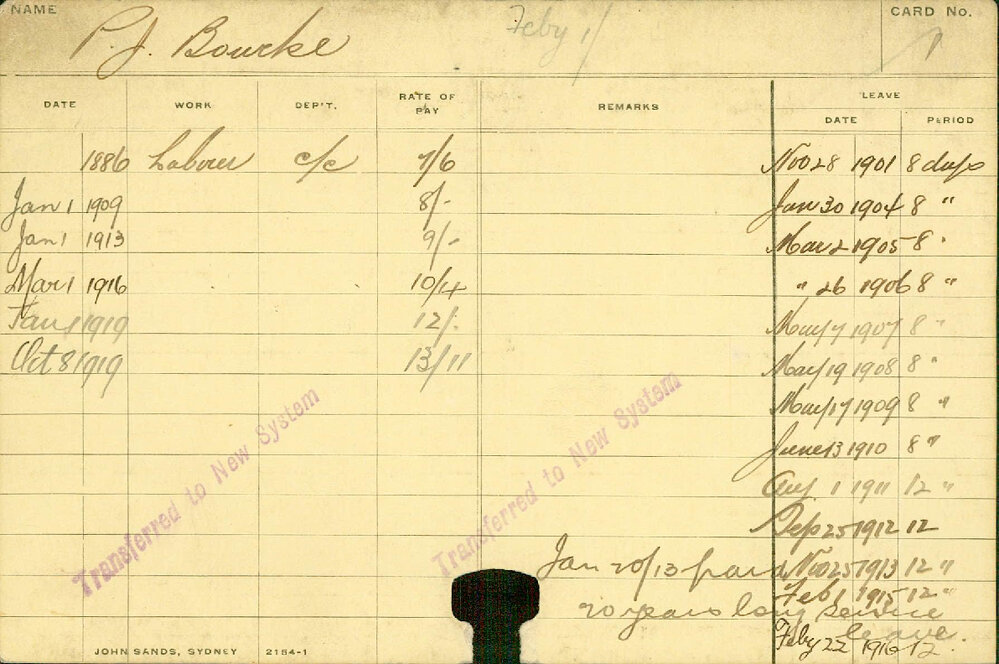 NAME P. J. Bourke Feby 1/ CARD No. 1
DATE WORK DEP'T. RATE OF PAY REMARKS LEAVE
DATE PERIOD
1886 Laborer c/c 7/6 Nov 28 1901 8 days
Jan 1 1909 8/- Jan 30 1904 8 "
Jan 1 1913 9/- Mar 2 1905 8 "
Mar 1 1916 10/4 " 26 1906 8 "
Jan 1 1919 12/- May 7 1907 8 "
Oct 8 1919 13/11 May 19 1908 8 "
May 17 1909 8 "
June 13 1910 8 "
Aug 1 1911 12 "
Sep 25 1912 12
Jan 20/13 paid Nov 25 1913 12 "
Feb 1 1915 12 "
20 years long service
leave.
Feby 22 1916 12
Transferred to New System
Transferred to New System
JOHN SANDS, SYDNEY 2154-1